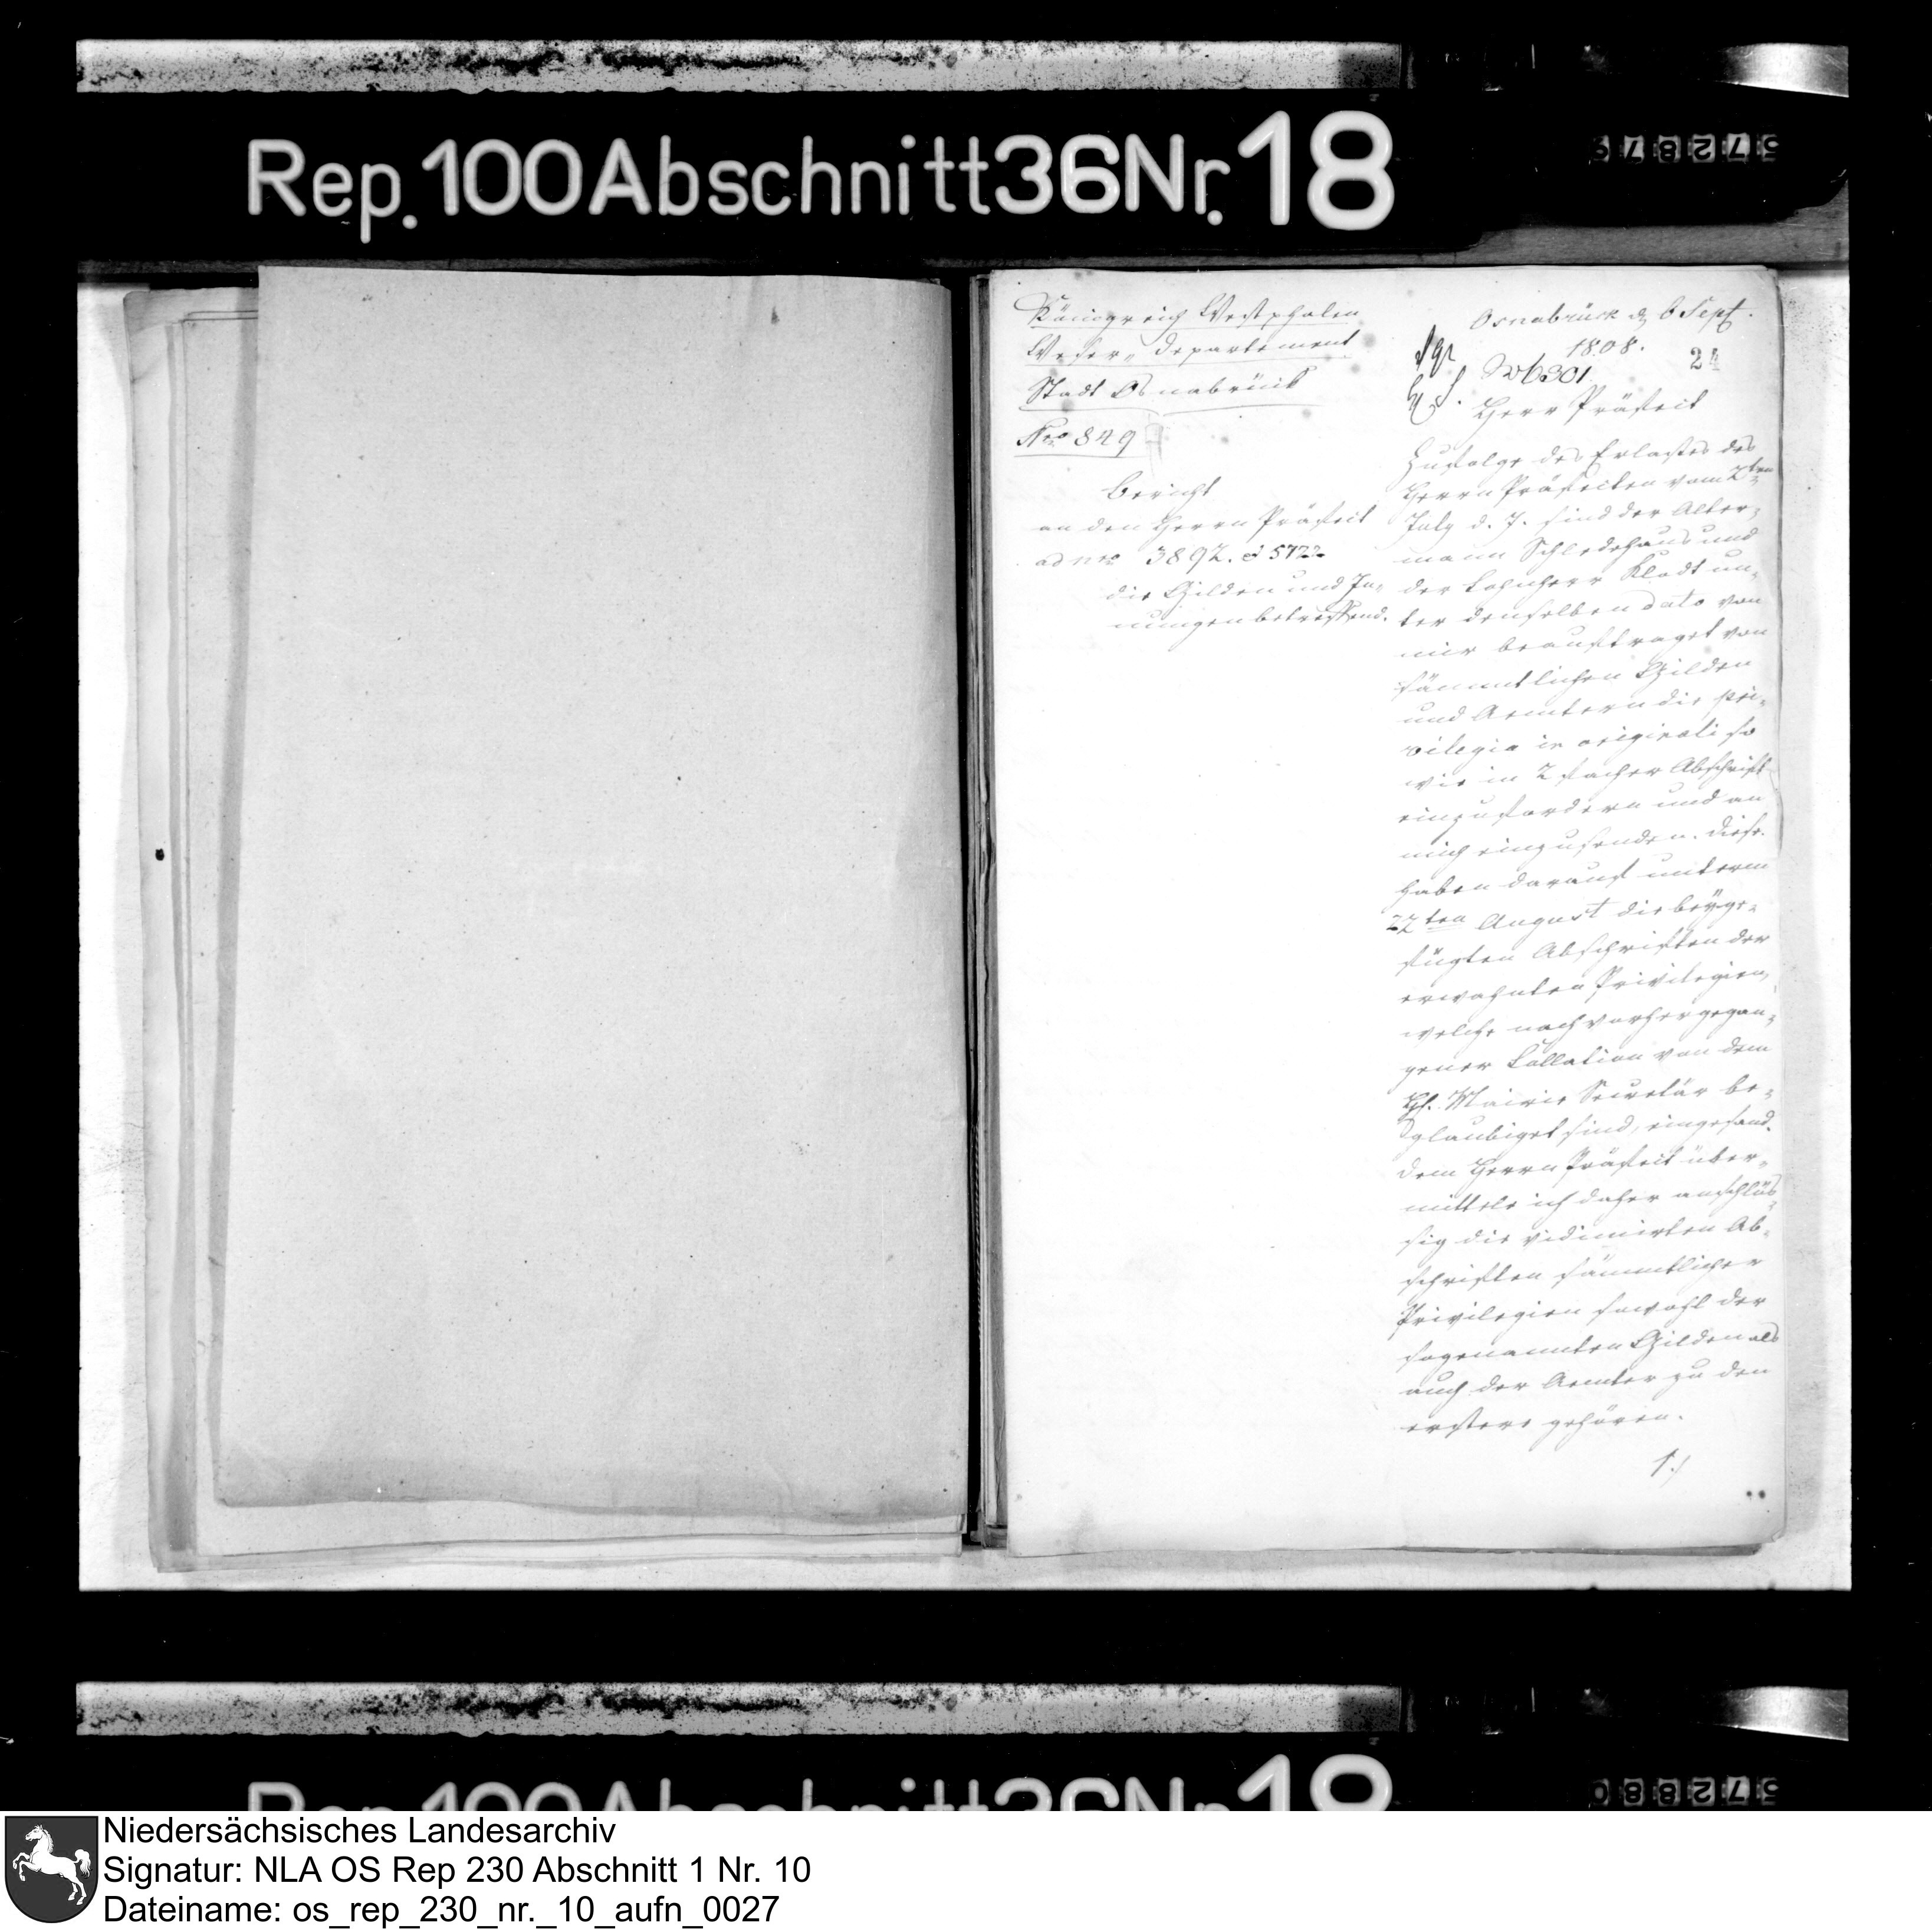 Rep. 100 Abschnitt 36 Nr. 18
572879
Königreich Westphalen
Weser-Departement
Stadt Osnabrück
Nro 849
Bericht
an den Herrn Präfect
ad nro 3892. et 5722
die Gilden und In-
nungen betreffend.
Osnabrück d 6 Sept.
1808.
24
6301
Herr Präfect
Zufolge des Erlasses des
Herrn Präfecten vom 2ten
July d. J. sind der Alter-
mann Schledehaus und
der Lohnherr Klodt un-
ter demselben dato von
mir beauftraget von
sämmtlichen Gilden
und Aemtern die pri-
vilegia in originali so
wie in 2 facher Abschrift
einzufordern und an
mich einzusenden. Diese
haben darauf unterm
22ten August die beyge-
fügten Abschriften der
erwahnten Privilegien,
welche nach vorhergegan-
gener Collation von dem
H. Mairie Secretär be-
glaubiget sind, eingesand.
Dem Herrn Präfect über-
mittele ich daher anschlüs-
sig die vidimirten Ab-
schriften sämmtlicher
Privilegien sowohl der
sogenannten Gilden als
auch der Aemter zu den
erstere gehören.
1.)
572880
Niedersächsisches Landesarchiv
Signatur: NLA OS Rep 230 Abschnitt 1 Nr. 10
Dateiname: os_rep_230_nr._10_aufn_0027